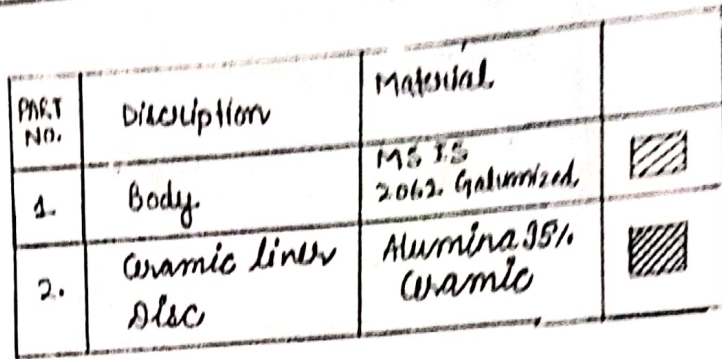 PART
NO.
Discription
Material
1.
Body.
MS IS
2062. Galvanized.
2.
Ceramic liner
Disc
Alumina 95%
Ceramic